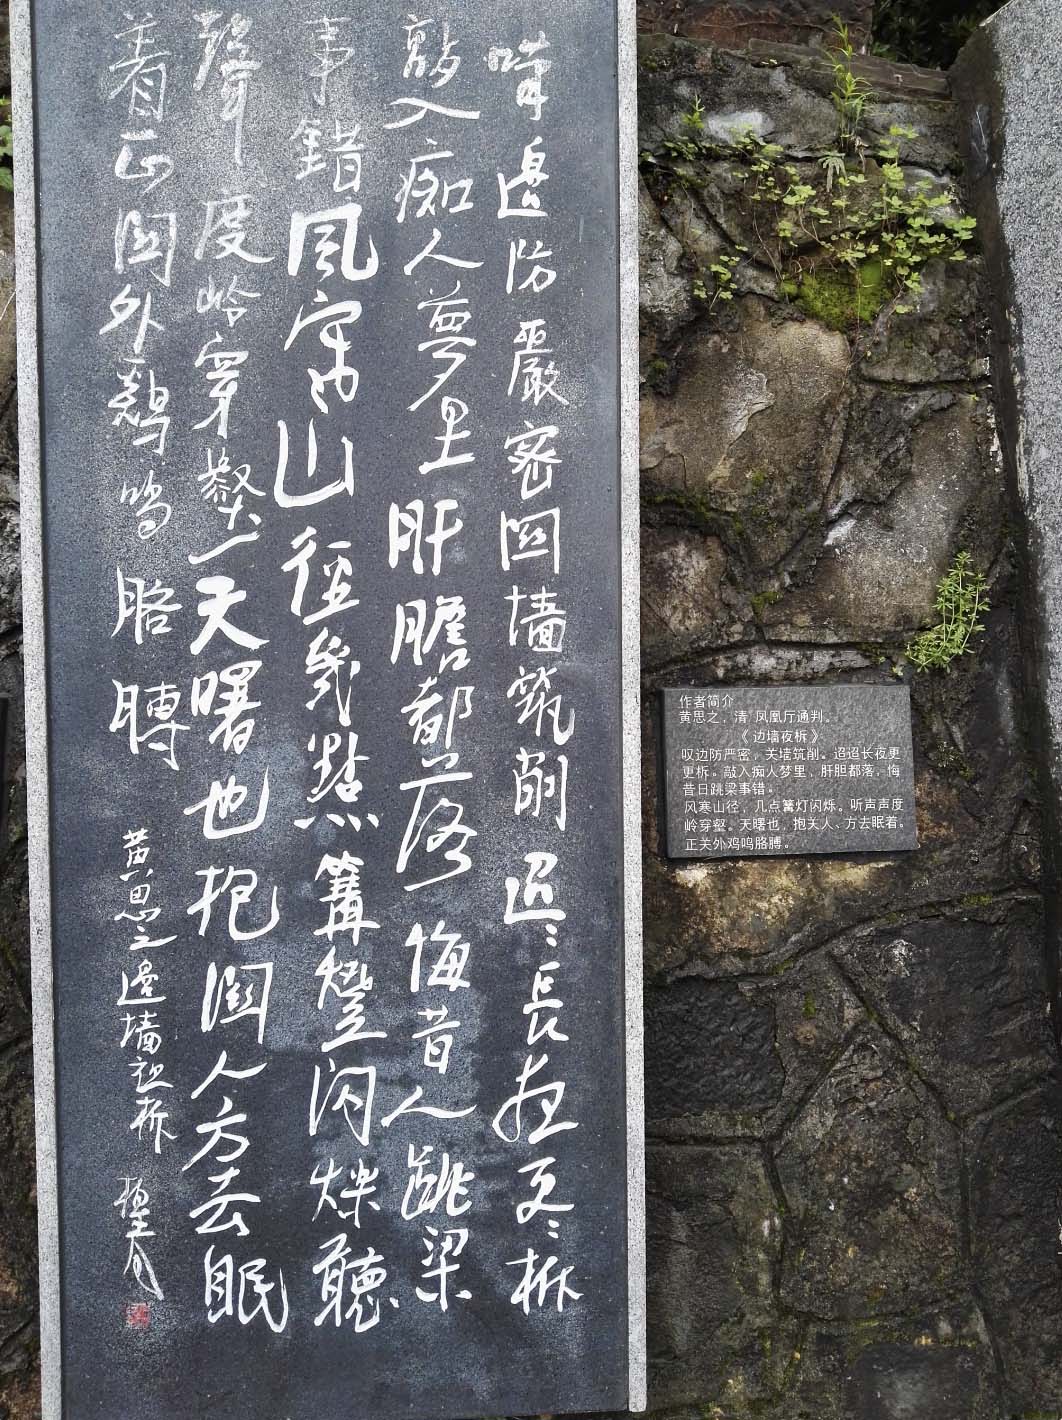 嘆邊防嚴密関墙筑削迢〻長夜更〻柝
敲入痴人夢里肝膽都落悔昔人跳梁
事錯風寒山徑幾點篝燈闪爍聽
聲聲度岭穿壑天曙也抱関人方去眠
着正関外鷄鸣胳膊
黄思之邊墙夜柝
作者简介
黄思之，清 凤凰厅通判。
《边墙夜柝》
叹边防严密，关墙筑削。迢迢长夜更
更柝。敲入痴人梦里，肝胆都落，悔
昔日跳梁事错。
风寒山径，几点篝灯闪烁。听声声度
岭穿壑。天曙也，抱关人、方去眠着。
正关外鸡鸣胳膊。